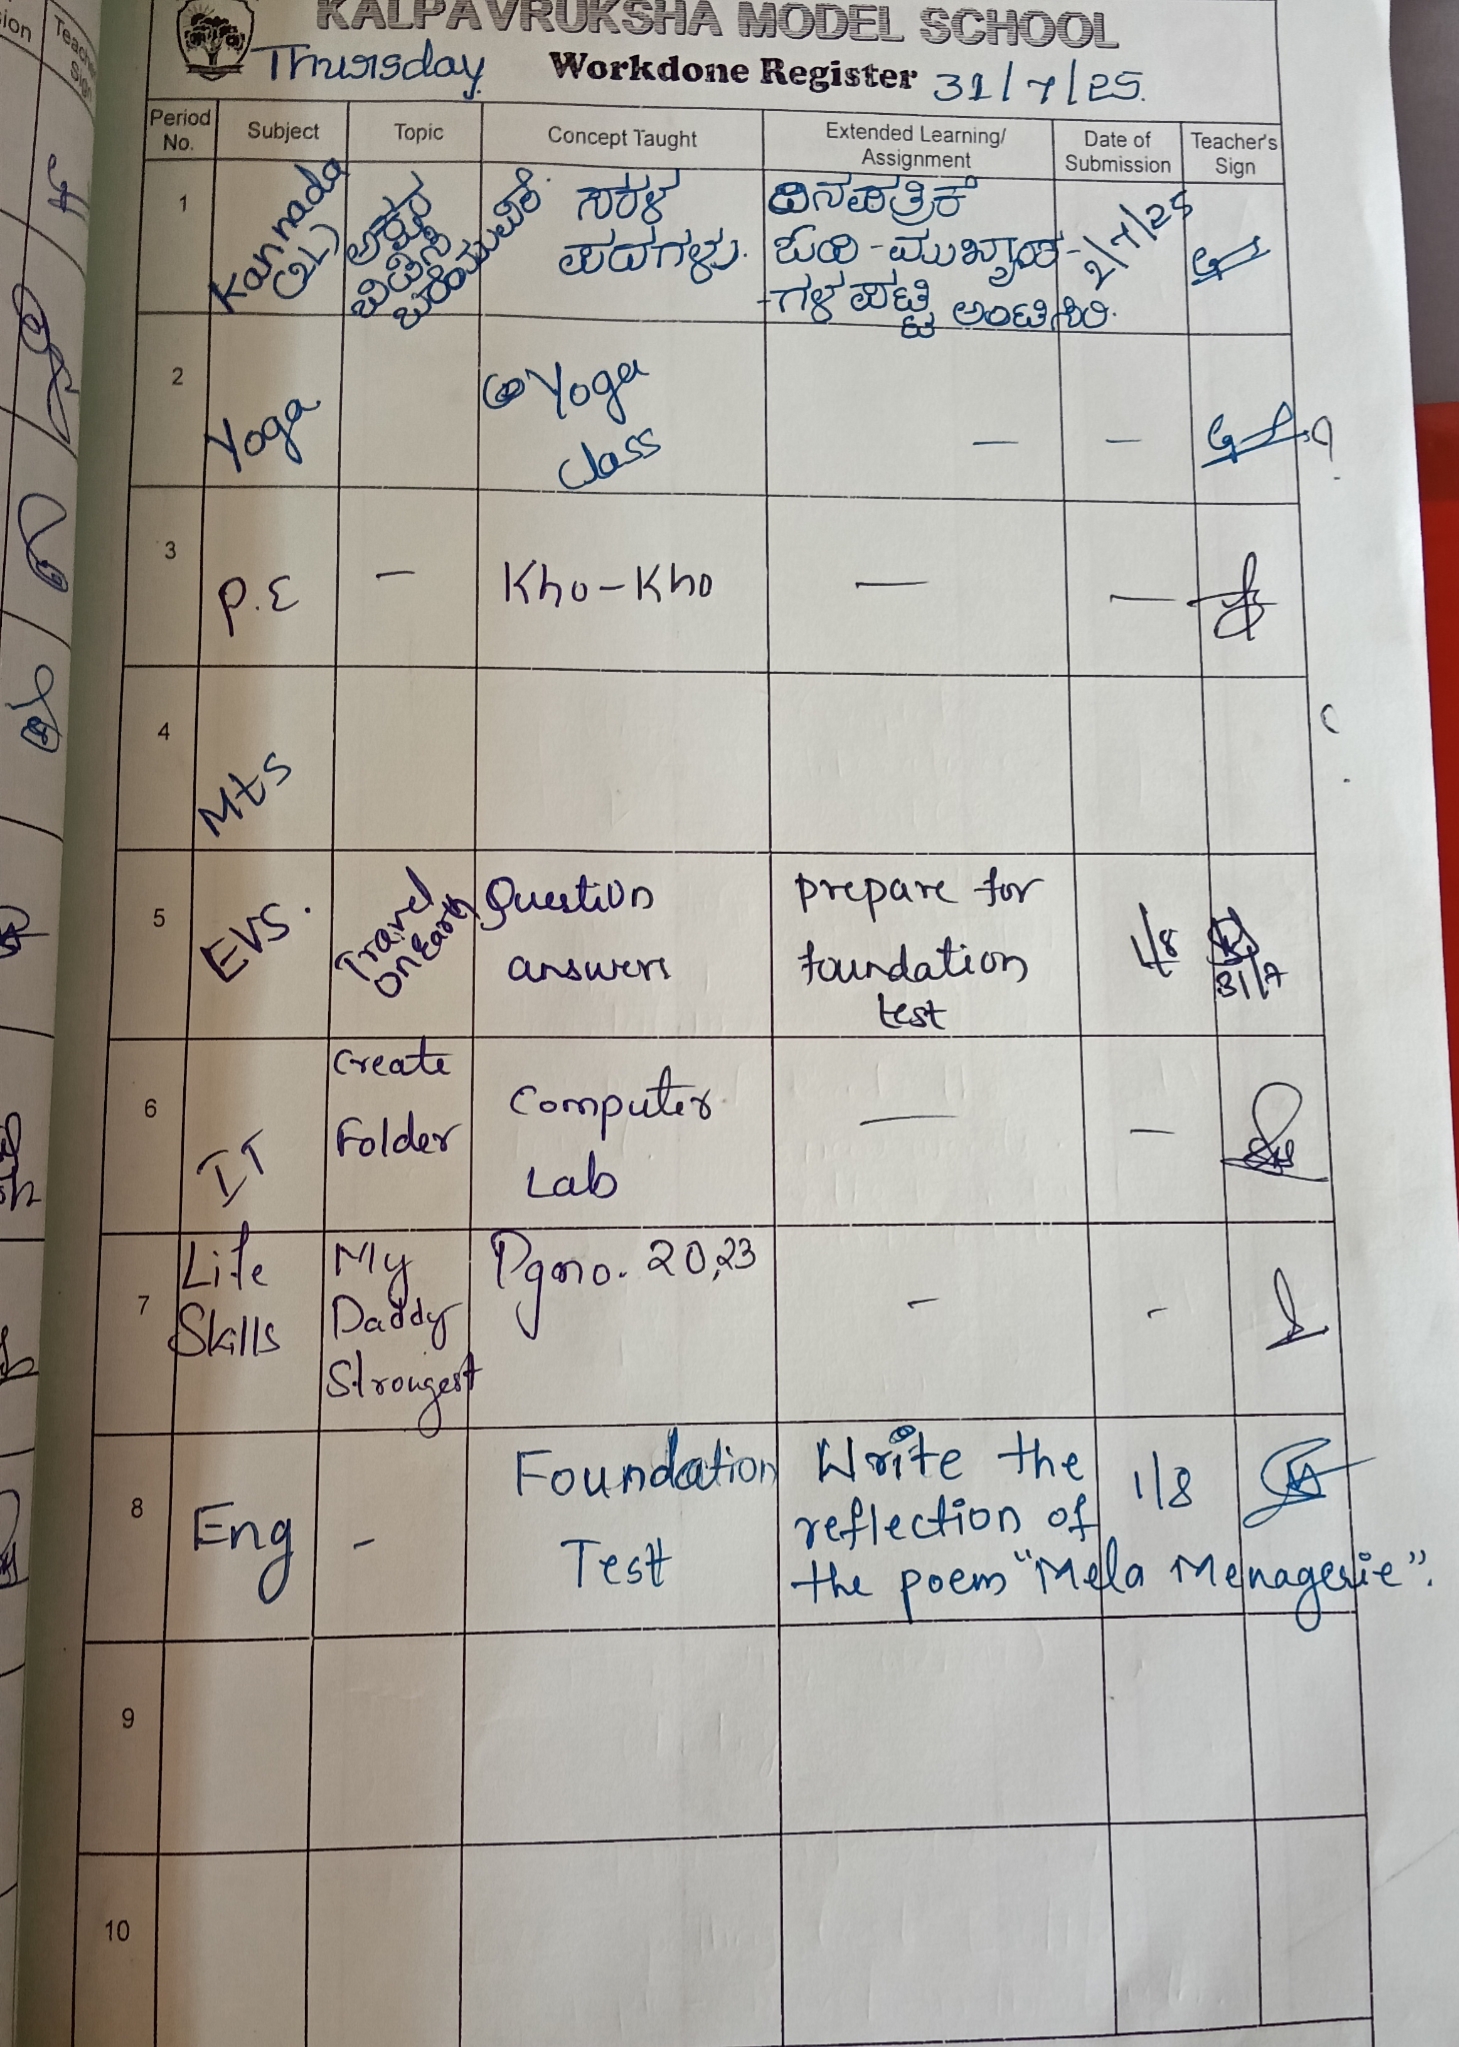 KALPAVRUKSHA MODEL SCHOOL
Thursday Workdone Register 31/7/25.
Period No. Subject Topic Concept Taught Extended Learning/ Assignment Date of Submission Teacher's Sign
1 Kannada (2L) ಅಕ್ಷರ ಸರಳ ದಿನಪತ್ರಿಕೆ 2/7/25
ಪದಗಳು. ಓದಿ - ಮುಖ್ಯಾಂಶ-
-ಗಳ ಪಟ್ಟಿ ಅಂಟಿಸಿರಿ.
2 Yoga Yoga — —
class
3 P.E — Kho-Kho — —
4 Mts
5 EVS. Travel on Earth Question prepare for 1/8
answers foundation 31/7
test
6 IT Create Computer — —
Folder Lab
7 Life My Pgno. 20,23 - -
Skills Daddy
Strongest
8 Eng - Foundation Write the 1/8
Test reflection of
the poem "Mela Menagerie".
9
10